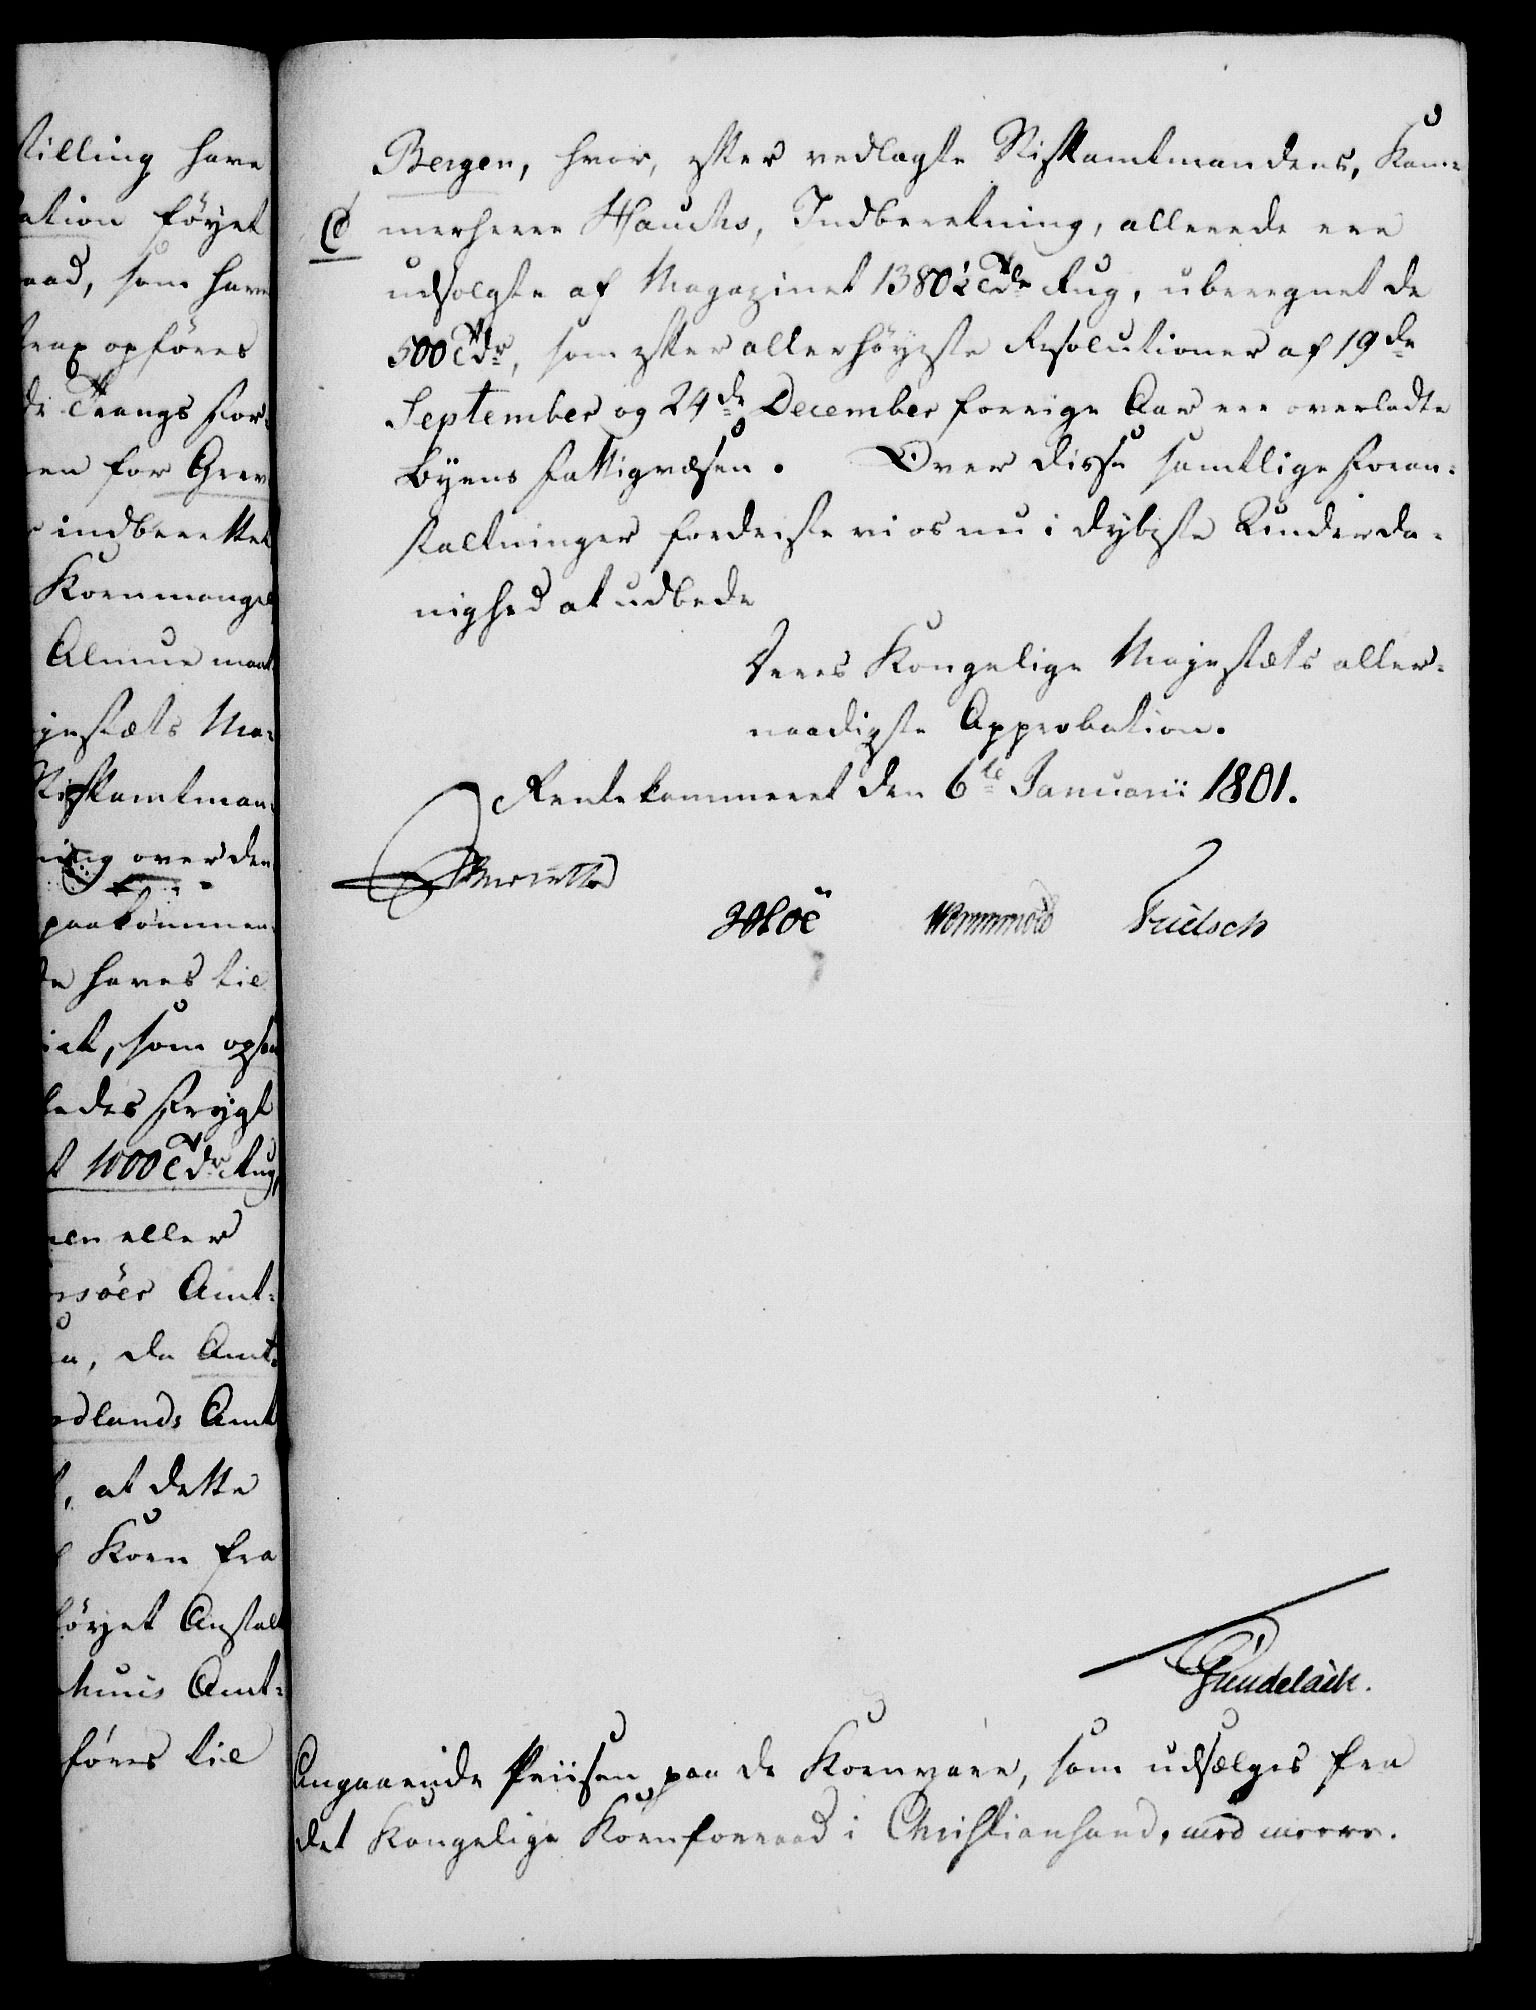 tilling have
ation föyet
aad, som have
trax opföres
de Trangs For-
en for Grev
indberettet
Kornmangel
Almue maat
jestæts Ma-
Stiftamtman-
ning over den
paakommen-
de haves til
iet, som opsen
ledes Frygt
t 1000 Tdr Rug,
nen eller
nsöes Amt-
en, da Amt-
odlands Amt
t, at dette
Korn fra
föyet Anstalt
huus Amt-
föres til
Bergen, hvor, efter vedlagte Stiftamtmandens, Kam-
C merherre Hauchs, Indberetning, allerede ere
udsolgte af Magazinet 1380½ Tdr Rug, uberegnet de
500 Tdr, som efter allerhöyeste Resolutioner af 19de
September og 24de December forrige Aar ere overladte
Byens Fattigvæsen. Over disse samtlige Foran-
staltninger fordriste vi os nu i dybeste Underda-
nighed at udbede
Deres Kongelige Majestæts aller-
naadigste Approbation.
Rentekammeret den 6te Januarii 1801.
Reventlow
Hoë Wormskiold Fritsch
Gundelach.
Angaaende Priisen paa de Kornvare, som udsælges fra
det Kongelige Kornforraad i Christiansand, med meere.